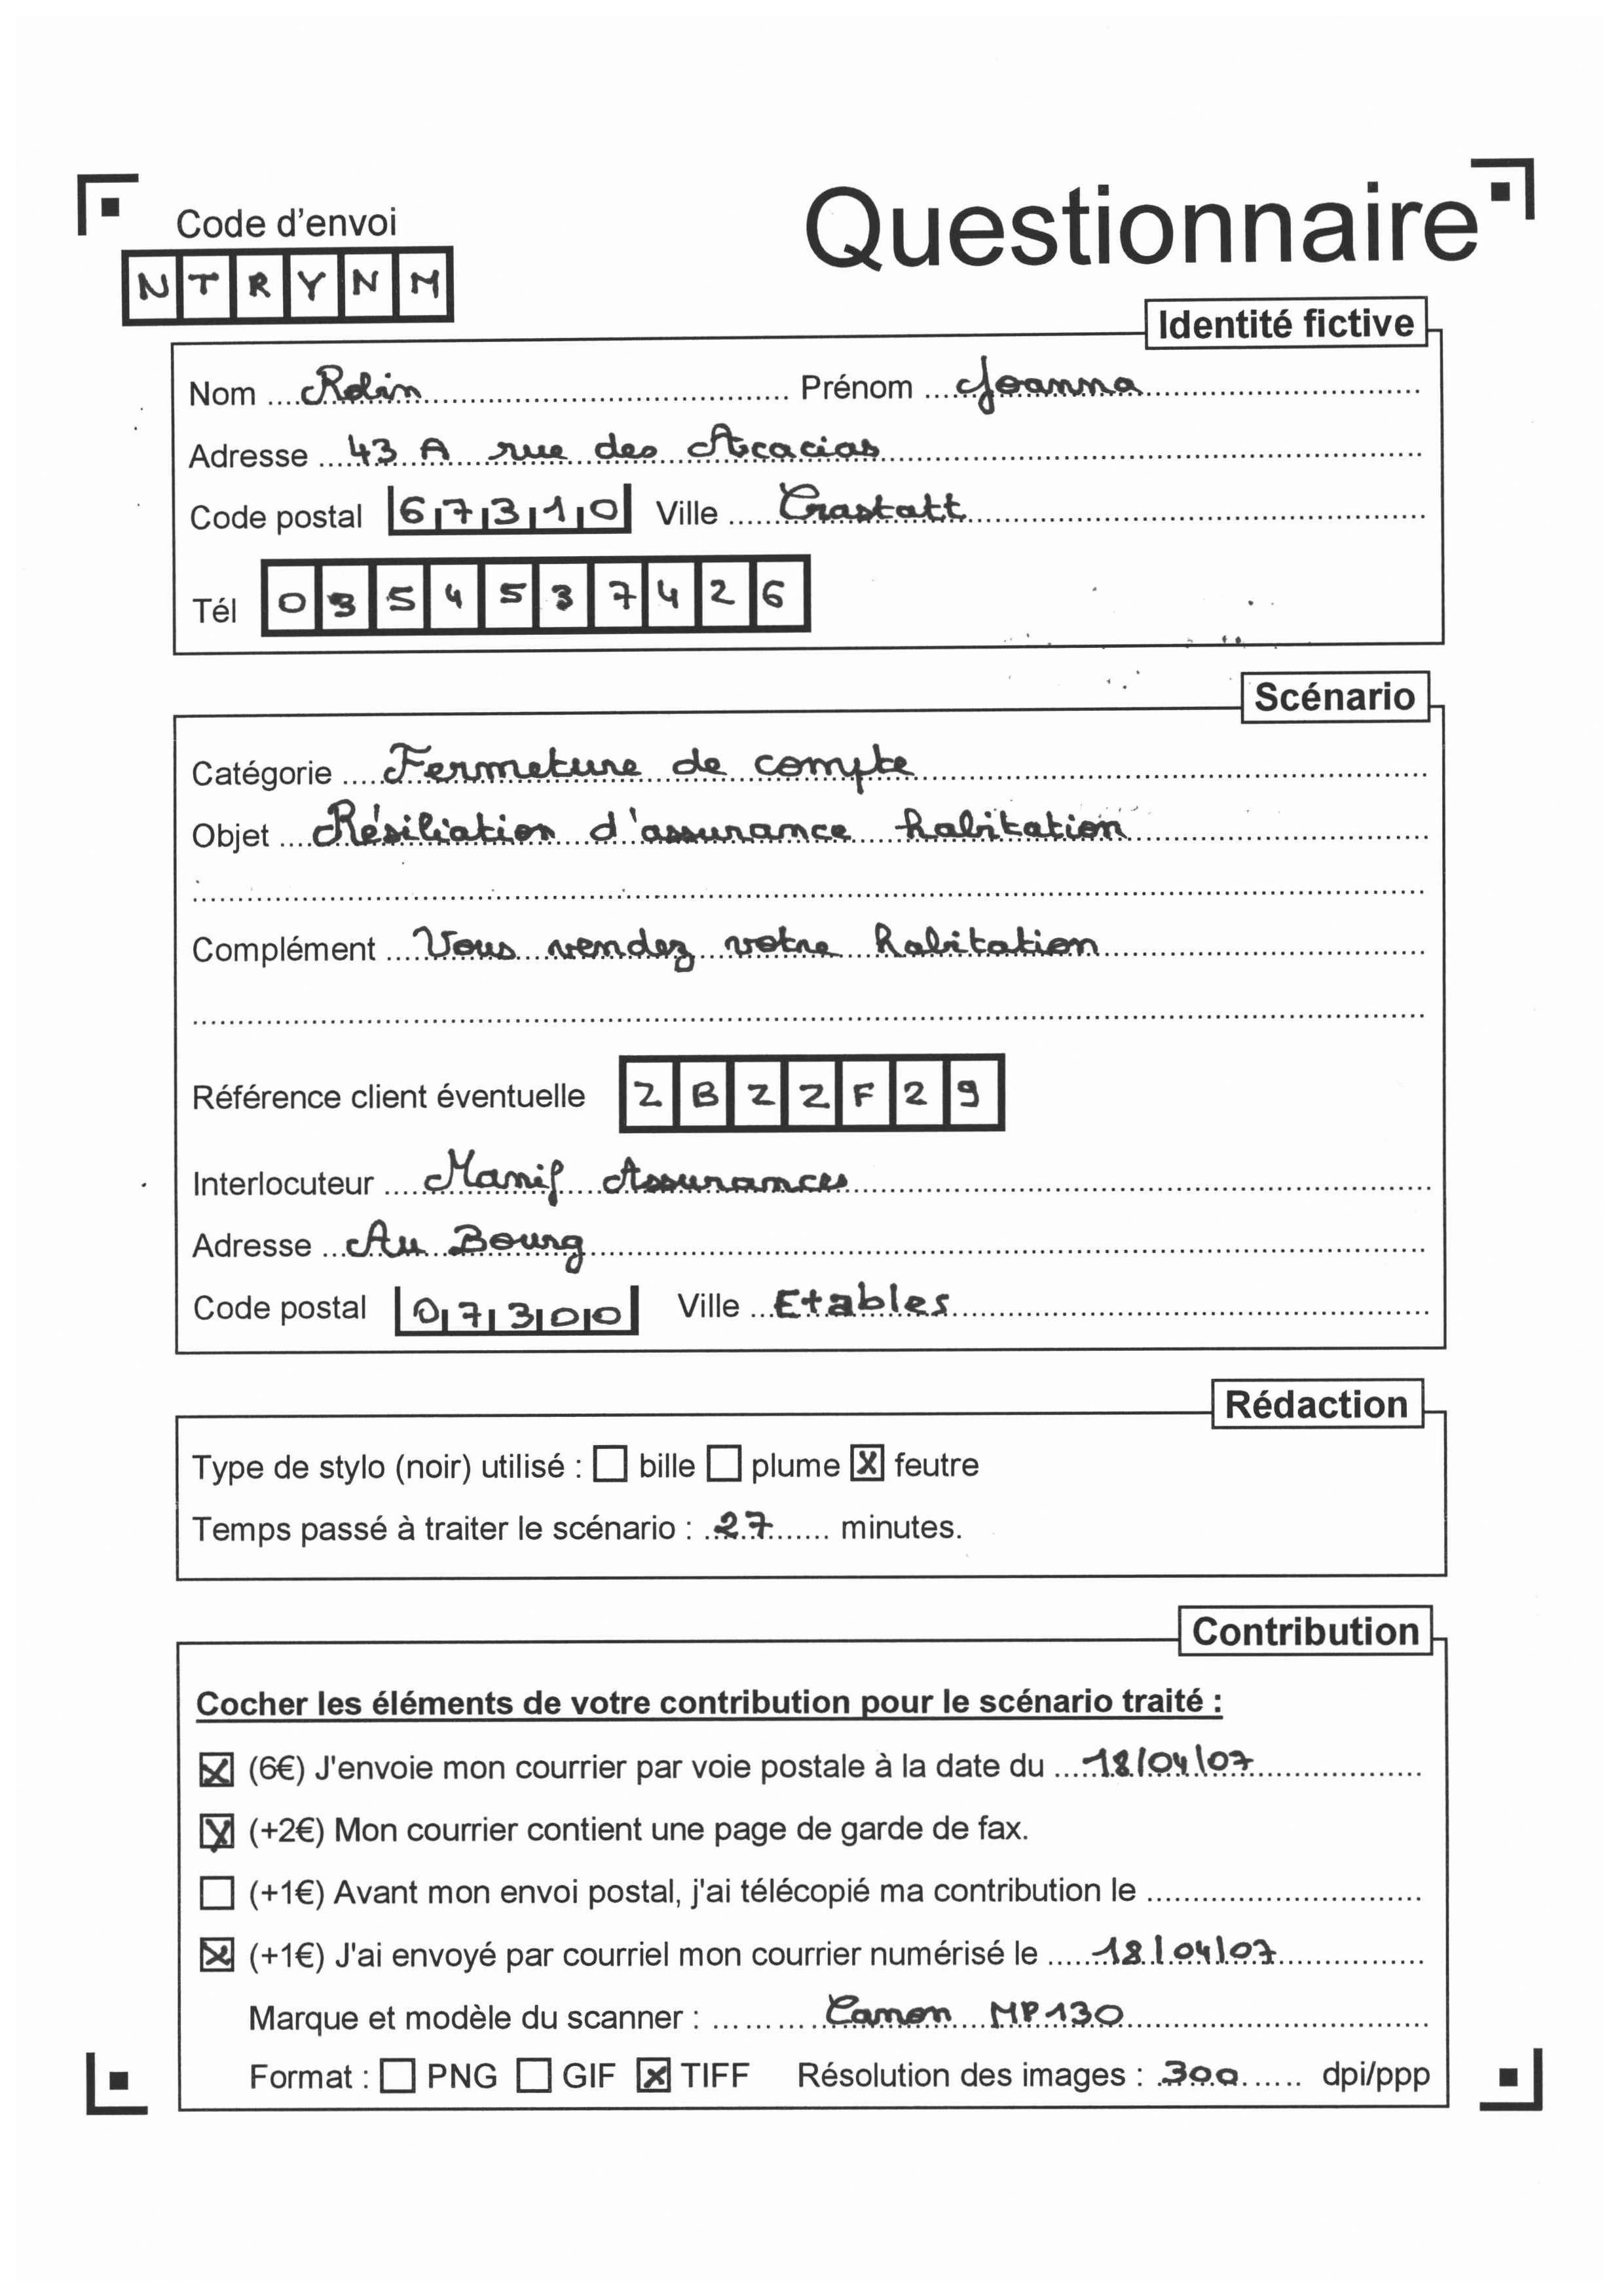 Questionnaire
Code d'envoi
NTRYNM
Identité fictive
Nom .... Rolin .... Prénom .... Joanna
Adresse .... 43 A rue des Acacias
Code postal 67310 Ville .... Crastatt
Tél 0354537426
Scénario
Catégorie .... Fermeture de compte
Objet .... Résiliation d'assurance habitation
Complément .... Vous vendez votre habitation
Référence client éventuelle ZBZZF29
Interlocuteur .... Manif Assurances
Adresse ... Au Bourg
Code postal 07300 Ville ... Etables
Rédaction
Type de stylo (noir) utilisé : ☐ bille ☐ plume ☒ feutre
Temps passé à traiter le scénario : .. 27 ...... minutes.
Contribution
Cocher les éléments de votre contribution pour le scénario traité :
☒ (6€) J'envoie mon courrier par voie postale à la date du .... 18/04/07
☒ (+2€) Mon courrier contient une page de garde de fax.
☐ (+1€) Avant mon envoi postal, j'ai télécopié ma contribution le ....
☒ (+1€) J'ai envoyé par courriel mon courrier numérisé le .... 18/04/07
Marque et modèle du scanner : .... Canon MP130
Format : ☐ PNG ☐ GIF ☒ TIFF Résolution des images : 300 ...... dpi/ppp